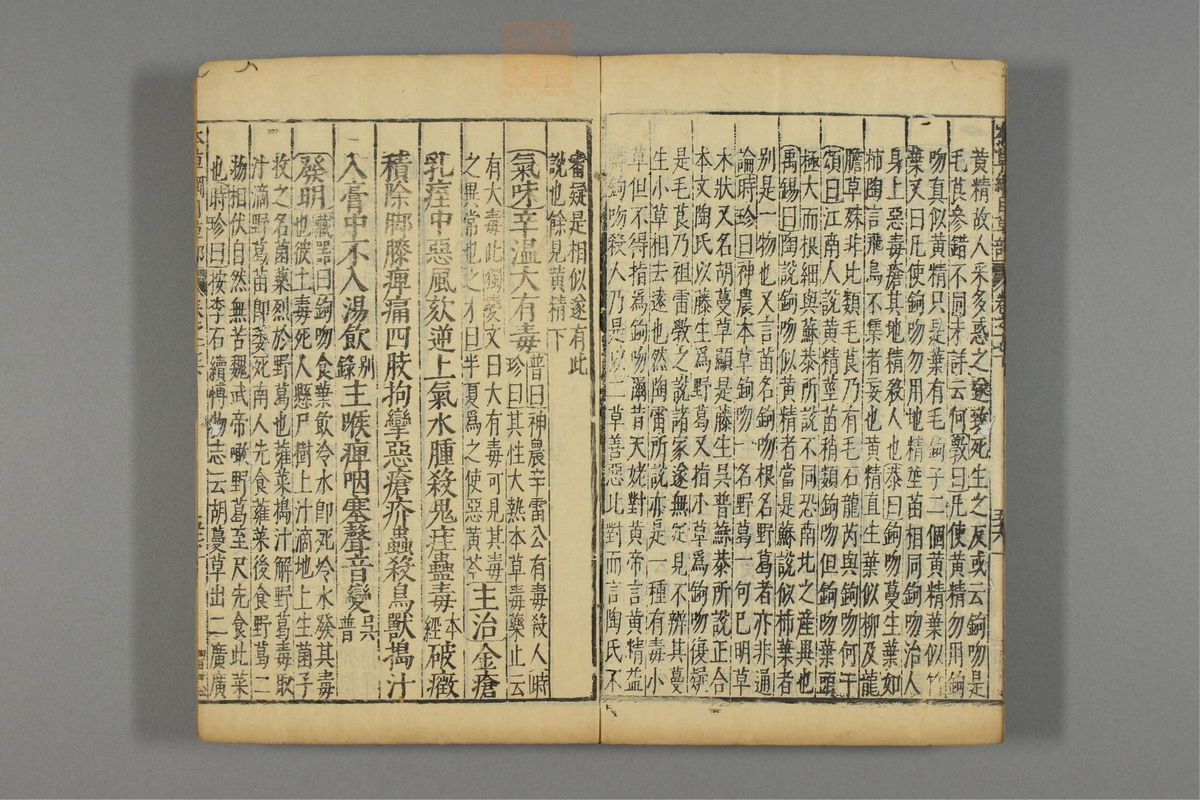 黄精故人采多惑之遂致死生之反或云鉤吻是
毛茛參錯不同未詳云何斅曰凡使黄精勿用鉤
吻真似黄精只是葉有毛鉤子二個黄精葉似竹
葉又曰凡使鉤吻勿用地精莖苗相同鉤吻治人
身上惡毒瘡其地精殺人也恭曰鉤吻蔓生葉如
柿陶言飛鳥不集者妄也黄精直生葉似柳及龍
膽草殊非比類毛茛乃有毛石龍芮與鉤吻何干
頌曰江南人說黄精莖苗稍類鉤吻但鉤吻葉頭
極大而根細與蘇恭所說不同恐南北之產異也
禹錫曰陶說鉤吻似黄精者當是蘇說似柿葉者
别是一物也又言苗名鉤吻根名野葛者亦非通
論時珍曰神農本草鉤吻一名野葛一句已明草
木狀又名胡蔓草顯是藤生吳普蘇恭所說正合
本文陶氏以藤生爲野葛又指小草爲鉤吻復疑
是毛茛乃祖雷斅之說諸家遂無定見不辨其蔓
生小草相去遠也然陶雷所說亦是一種有毒小
草但不得指爲鉤吻爾昔天姥對黄帝言黄精益
壽鉤吻殺人乃是以二草善惡比對而言陶氏不
審疑是相似遂有此
說也餘見黄精下
氣味辛溫大有毒普曰神農辛雷公有毒殺人時
珍曰其性大熱本草毒藥止云
有大毒此獨變文曰大有毒可見其毒
之異常也之才曰半夏爲之使惡黄芩主治金瘡
乳痓中惡風欬逆上氣水腫殺鬼疰蠱毒本經破癥
積除脚膝痺痛四肢拘攣惡瘡疥蟲殺鳥獸搗汁
入膏中不入湯飲别錄主喉痺咽塞聲音變吳普
發明藏器曰鉤吻食葉飲冷水即死冷水發其毒
也彼土毒死人懸尸樹上汁滴地上生菌子
收之名菌藥烈於野葛也蕹菜搗汁解野葛毒取
汁滴野葛苗即萎死南人先食蕹菜後食野葛二
物相伏自然無苦魏武帝噉野葛至尺先食此菜
也時珍曰按李石續博物志云胡蔓草出二廣廣